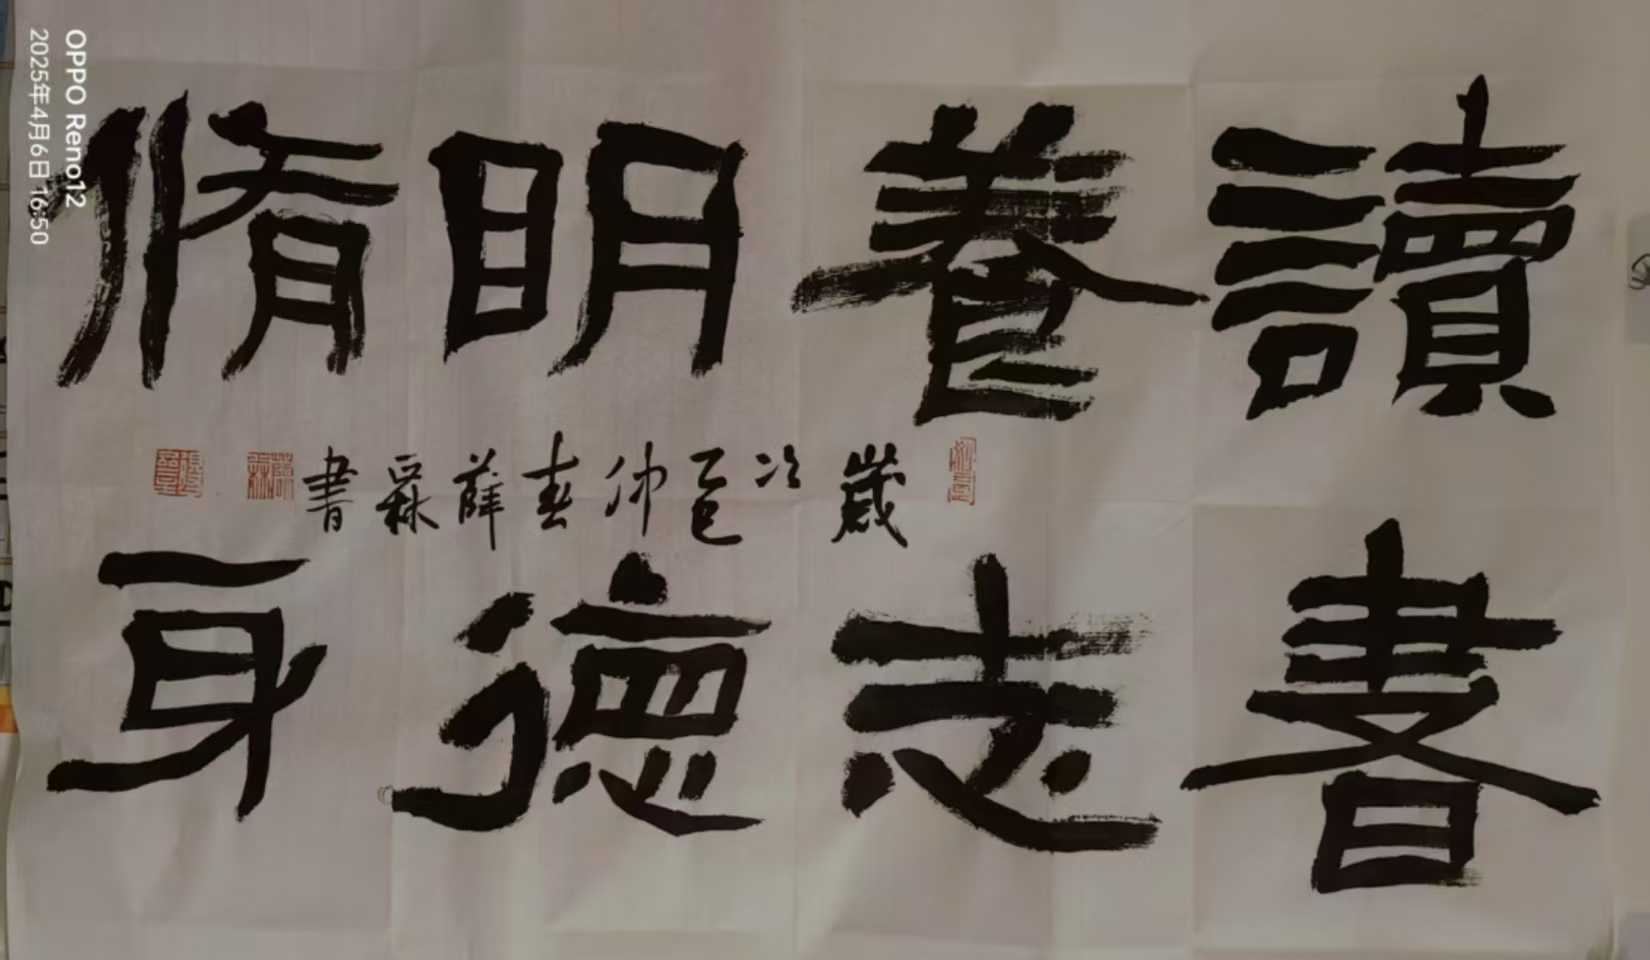 讀書
養志
眀德
脩身
歲次乙巳仲春薛書
OPPO Reno12
2025年4月6日 16:50